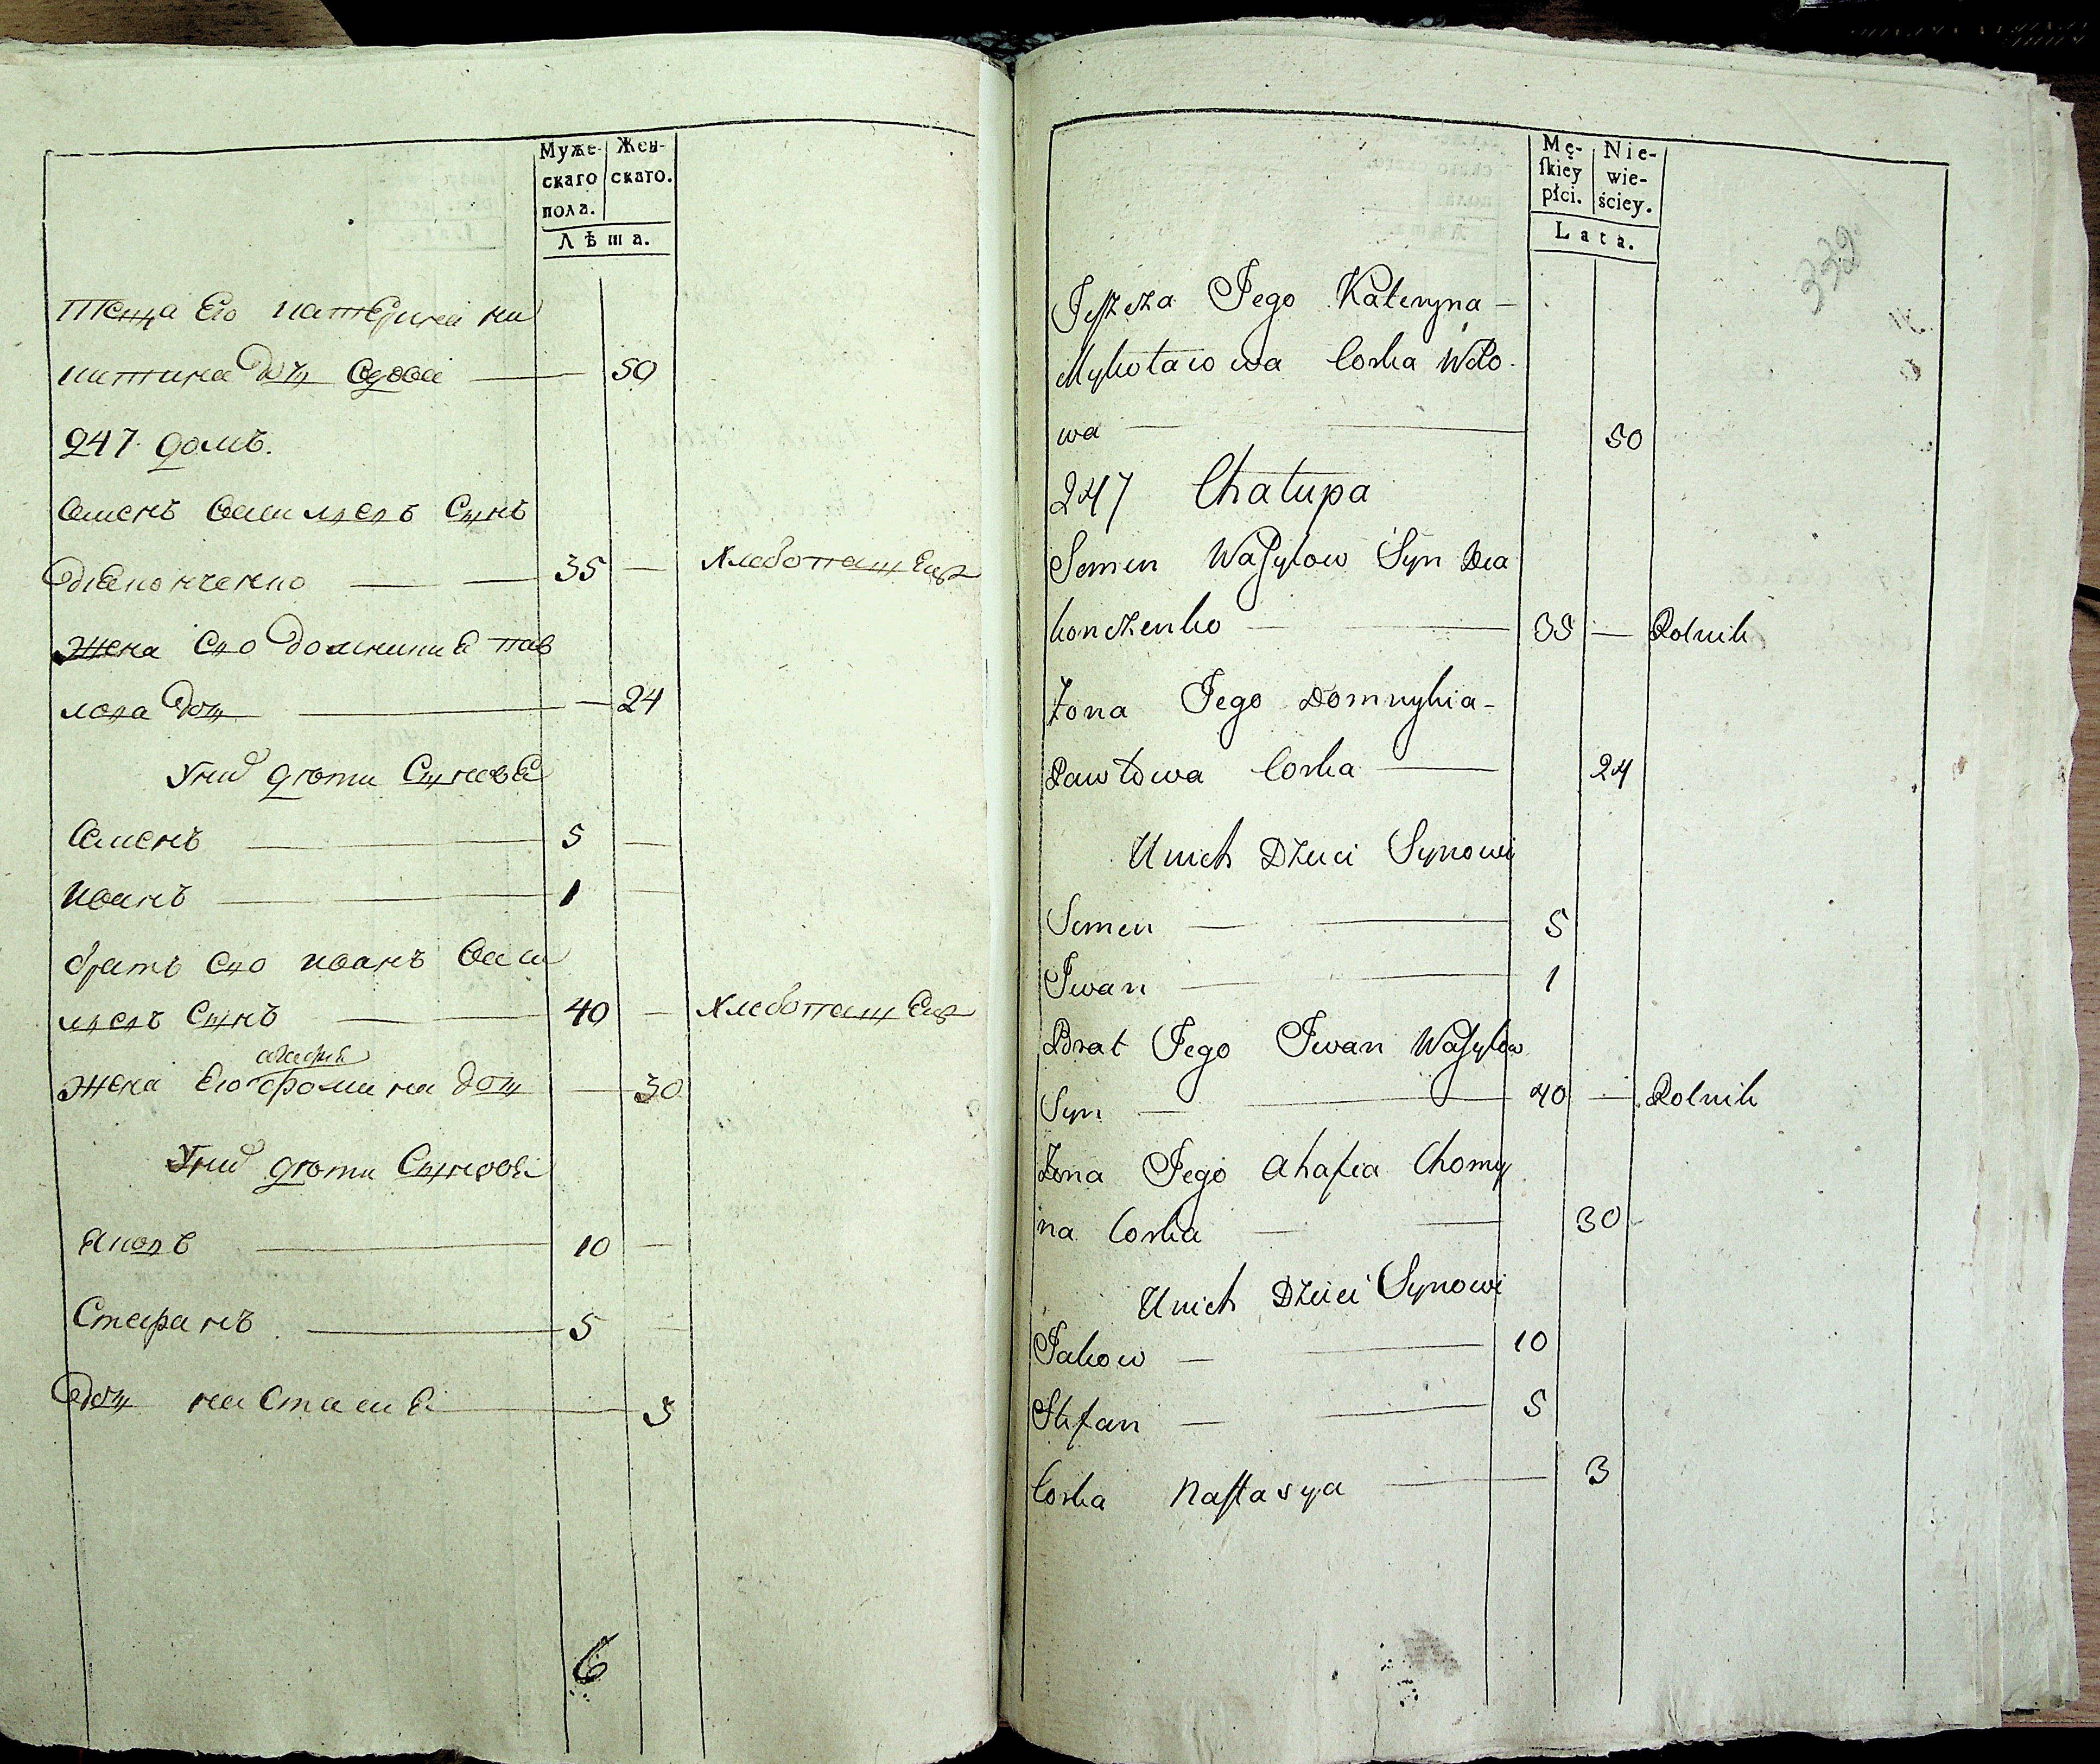 Муже-
скаго
пола.
Жен-
скаго.
Лѣта.
Теща Его катерина ни
китина доч вдова — 50
247 домъ.
Семенъ василіевъ Сынъ
діяконченко — 35 — хлебопашецъ
жена Его домникия пав
лова доч — 24
У них дѣти Сыновя
Семенъ — 5 —
иванъ — 1 —
братъ Его иванъ васи
лиевъ Сынъ — 40 — хлебопашецъ
агафия
жена Его фомина доч — 30
У них дѣти Сыновя
яковъ — 10 —
Стефанъ — 5 —
доч настася — 3
6
Mę-
ſkiey
płci.
Nie-
wie-
ściey.
Lata.
339
Teſzcza Jego Kateryna —
Mykołaiowa Corka Wdo-
wa — 50
247 Chałupa
Semen Waſylow Syn Dia
konczenko — 35 — Rolnik
Żona Jego Domnykia —
Pawłowa Corka — 24
U nich Dzieci Synowi
Semen — 5
Iwan — 1
Brat Jego Iwan Waſylow
Syn — 40 — Rolnik
Żona Jego Ahafia Chomy
na Corka — 30
U nich Dzieci Synowi
Jakow — 10
Stefan — 5
Corka Naſtasya — 3